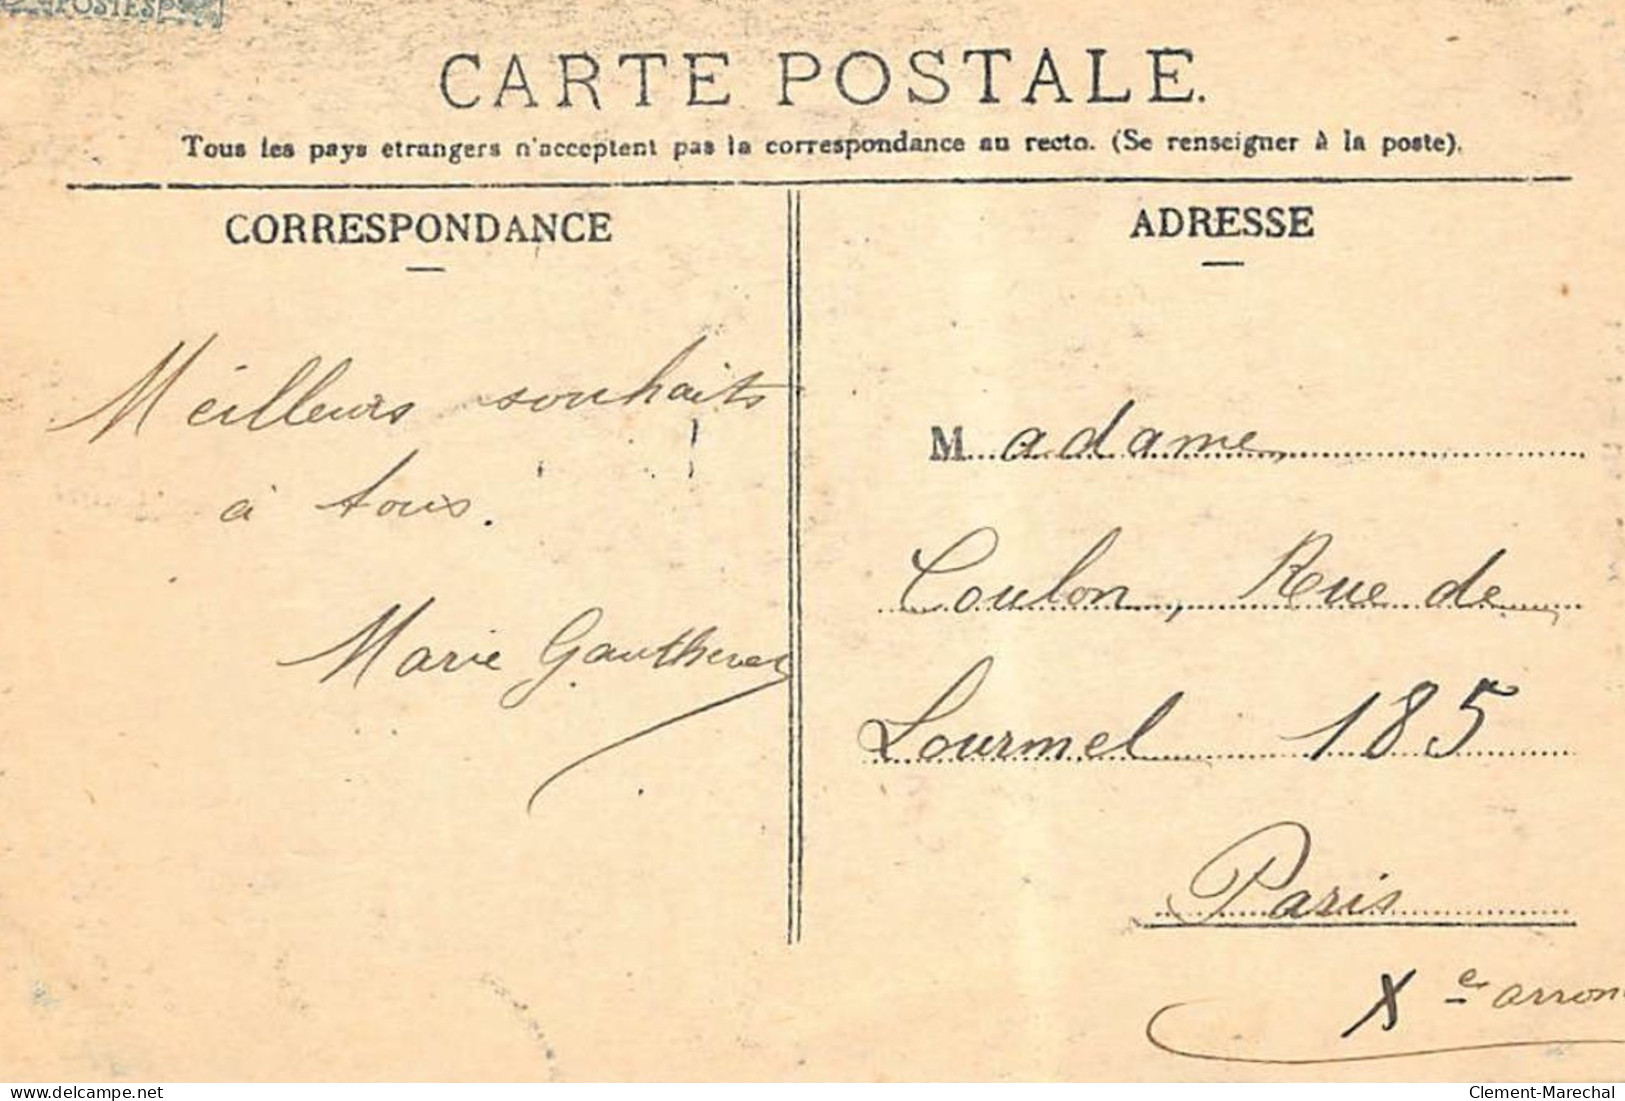 POSTES
CARTE POSTALE.
Tous les pays etrangers n'acceptent pas la correspondance au recto. (Se renseigner à la poste).
CORRESPONDANCE
Meilleurs souhaits
à tous.
Marie Gautheret
ADRESSE
Madame
Coulon, Rue de
Lourmel 185
Paris
Xe arron
delcampe.net
Clement-Marechal